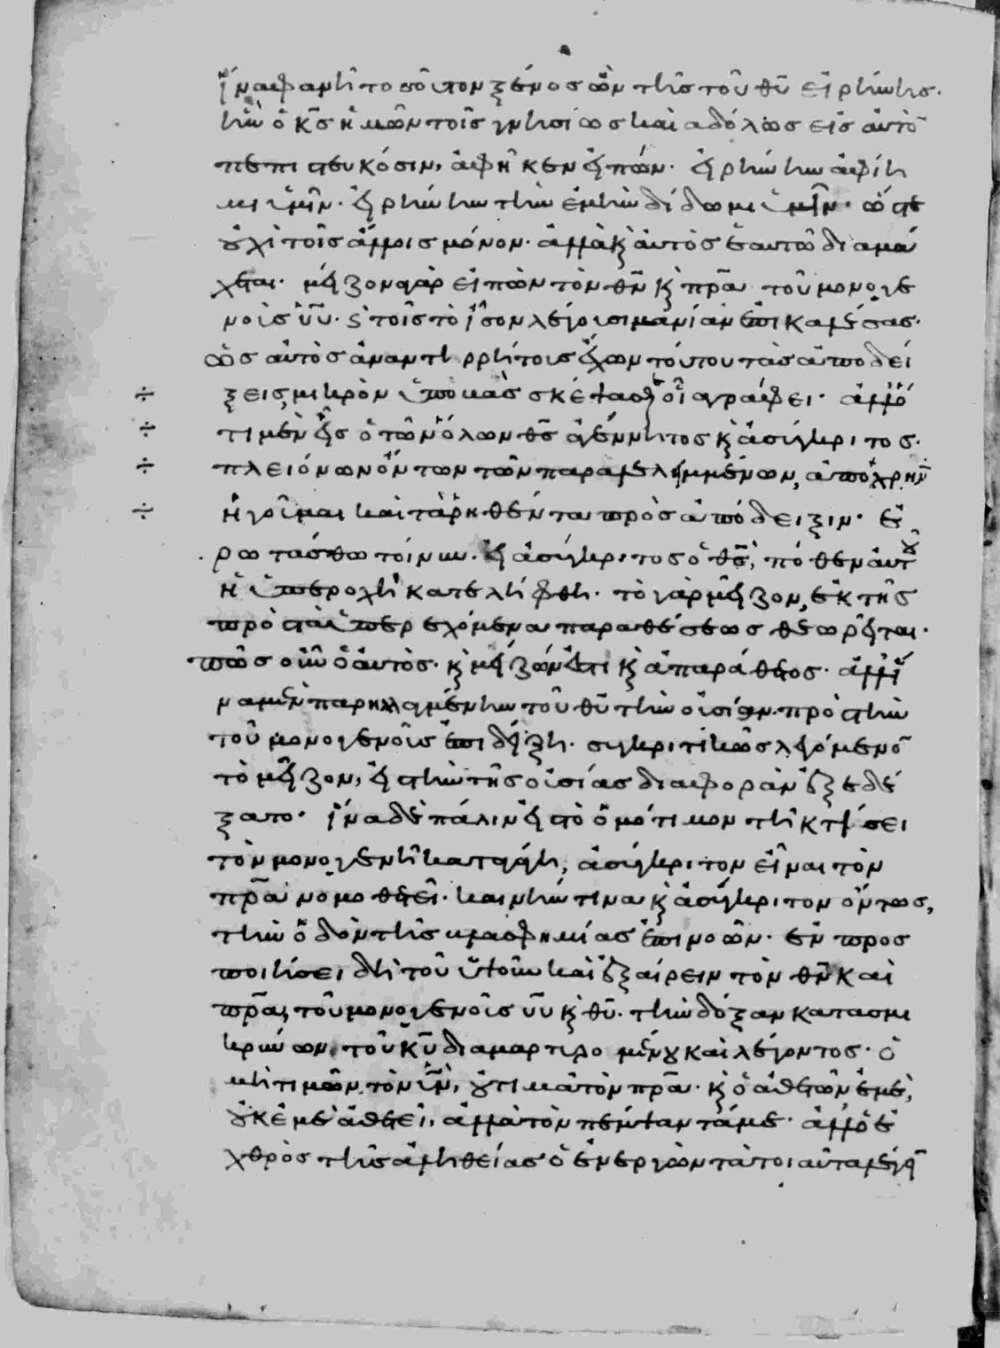 ἵνα φανῇ τοσοῦτον ξένος ὢν τῆς τοῦ θῦ εἰρήνης.
ἣν ὁ κς ἡμῶν τοῖς γνησίως καὶ ἀδόλως εἰς αὐτὸ
πεπιστευκόσιν, ἀφῆκεν εἰπών· εἰρήνην ἀφίη
μι ὑμῖν· εἰρήνην τὴν ἐμὴν δίδωμι ὑμῖν· ὥστε
οὐχὶ τοῖς ἄλλοις μόνον· ἀλλὰ κ αὐτὸς ἑαυτῶ διαμά
χεται· μείζονα γὰρ εἰπὼν τὸν θν κ πρα τοῦ μονογε
νοῦς υυ· τοῖς τὸ ἴσον λέγουσι μανίαν ἐπικαλέσας·
ὡς αὐτὸς ἀναντιρρήτους ἔχων τούτου τὰς ἀποδεί
ξεις, μικρὸν ὑποκαταβὰς γράφει· ἀλλ' ὅ
τι μὲν εἷς ὁ τῶν ὅλων θς ἀγέννητος κ ἀσύγκριτος·
πλειόνων ὄντων τῶν παραλελειμμένων, ἀποχρῆν
ἡγοῦμαι καὶ τὰ ῥηθέντα πρὸς ἀπόδειξιν· ἐ
ρωτάσθω τοίνυν· εἰ ἀσύγκριτος ὁ θς, πόθεν αὐτοῦ
ἡ ὑπεροχὴ κατελήφθη· τὸ γὰρ μεῖζον, ἐκ τῆς
πρὸς τὰ ὑπερεχόμενα παραθέσεως θεωρεῖται·
πῶς οὖν ὁ αὐτὸς· κ μείζων ἐστι κ ἀπαράθετος· ἀλλ' ἵ
να μὲν παρηλλαγμένην τοῦ θῦ τὴν οὐσίαν πρὸς τὴν
τοῦ μονογενοῦς ἐπιδείξη· συγκριτικῶς λεγόμενον
τὸ μεῖζον, εἰς τὴν τῆς οὐσίας διαφορὰν ἐξεδέ
ξατο· ἵνα δὲ πάλιν εἰς τὸ ὁμότιμον τῆ κτίσει
τὸν μονογενῆ καταγάγη, ἀσύγκριτον εἶναι τὸν
πρα νομοθετεῖ· καινήν τινα κ ἀσύγκριτον ὄντως,
τὴν ὁδὸν τῆς βλασφημίας ἐπινοῶν· ἐν προσ
ποιήσει δὴ τοῦ ὑψοῦν καὶ ἐξαίρειν τὸν θν καὶ
πρα, τοῦ μονογενοῦς υυ κ θῦ· τὴν δόξαν κατασμι
κρύνων, τοῦ κυ διαμαρτυρομένου καὶ λέγοντος· ὁ
μὴ τιμῶν τὸν υν, οὐ τιμᾶ τὸν πρα· κ ὁ ἀθετῶν ἐμὲ,
οὐκ ἐμὲ ἀθετεῖ, ἀλλὰ τὸν πέμψαντά με· ἀλλ' ὁ ἐ
χθρὸς τῆς ἀληθείας ὁ ἐνεργῶν τὰ τοιαῦτα λέγειν